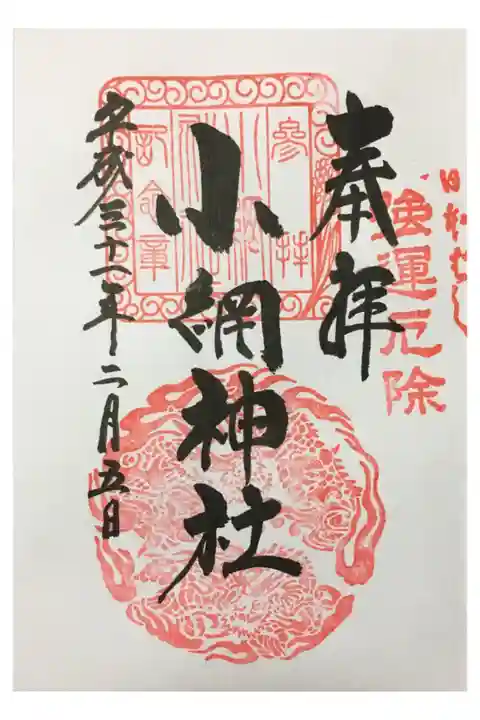 奉拝
強運厄除
小網神社
平成三十一年二月五日
参拝
記念章